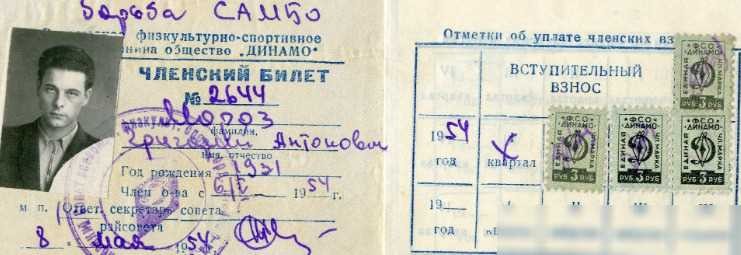 борьба САМБО
физкультурно-спортивное
общество „ДИНАМО“
ЧЛЕНСКИЙ БИЛЕТ
№ 2644
Мороз
фамилия,
Григорий Антонович
имя, отчество
Год рождения 1931
Член о-ва с 1954 г.
м. п. Ответ. секретарь совета
райсовета
8 мая 1954 г.
Отметки об уплате членских
ВСТУПИТЕЛЬНЫЙ
ВЗНОС
1954
год
квартал
19
год
ФСО
ДИНАМО
ЕДИНАЯ
ЧЛ. МАРКА
РУБ 3 РУБ
ФСО
ДИНАМО
ЕДИНАЯ
ЧЛ. МАРКА
РУБ 3 РУБ
ФСО
ДИНАМО
ЕДИНАЯ
ЧЛ. МАРКА
РУБ 3 РУБ
ФСО
ДИНАМО
ЕДИНАЯ
ЧЛ. МАРКА
РУБ 3 РУБ